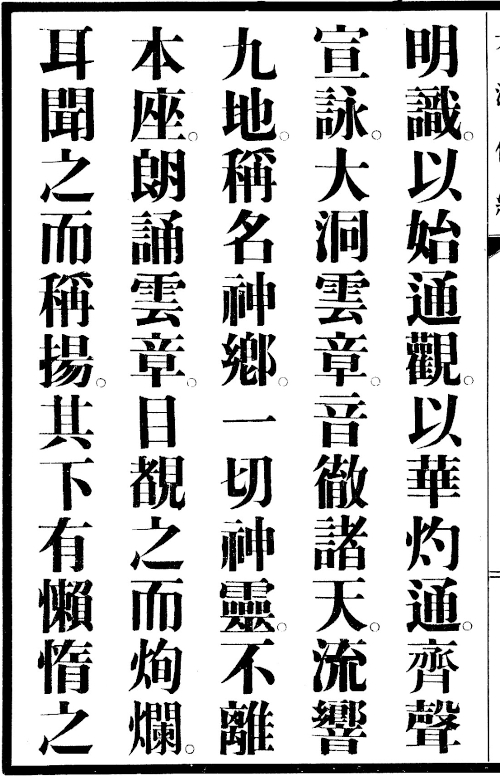 明識。以始通觀。以華灼通。齊聲
宣詠。大洞雲章。音徹諸天。流響
九地。稱名神鄉。一切神靈。不離
本座。朗誦雲章。目覩之而炯爛。
耳聞之而稱揚。其下有懶惰之